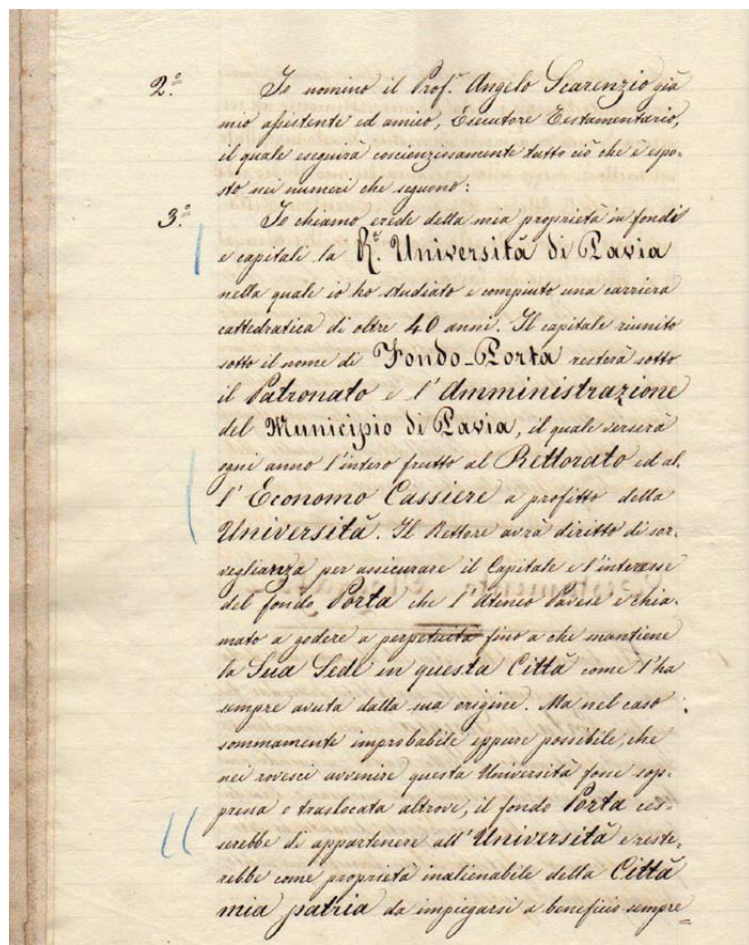 2.° Io nomino il Prof.r Angelo Scarenzio già
mio assistente ed amico, Esecutore Testamentario,
il quale eseguirà coscienziosamente tutto ciò che è espo-
sto nei numeri che seguono:
3.° Io chiamo erede della mia proprietà in fondi
e capitali la R.a Università di Pavia
nella quale io ho studiato e compiuto una carriera
cattedratica di oltre 40 anni. Il capitale riunito
sotto il nome di Fondo-Porta resterà sotto
il Patronato e l'Amministrazione
del Municipio di Pavia, il quale verserà
ogni anno l'intero frutto al Rettorato ed al-
l'Economo Cassiere a profitto della
Università. Il Rettore avrà diritto di sor-
veglianza per assicurare il Capitale e l'interesse
del fondo Porta che l'Ateneo Pavese è chia-
mato a godere a perpetuità fino a che mantiene
la Sua Sede in questa Città come l'ha
sempre avuta dalla sua origine. Ma nel caso
sommamente improbabile eppure possibile, che
nei rovesci avvenire questa Università fosse sop-
pressa o traslocata altrove, il fondo Porta ces-
serebbe di appartenere all'Università e reste-
rebbe come proprietà inalienabile della Città
mia patria da impiegarsi a beneficio sempre